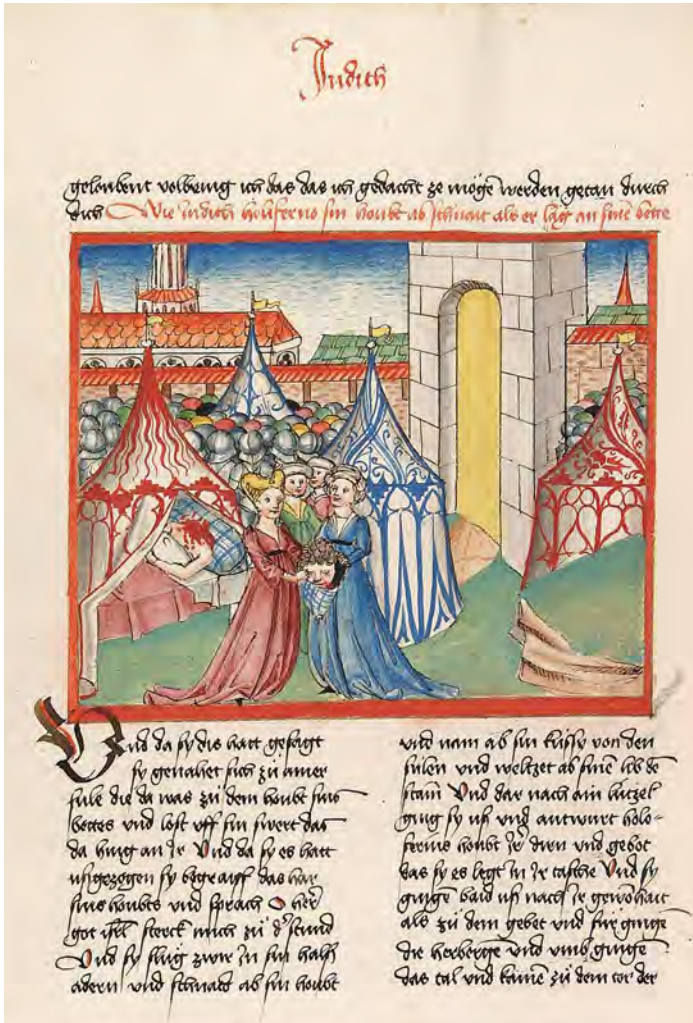 Judith
geloubent volbring ich das das ich gedacht ze möge werden getan durch
dich Wie iudith holiferno sin houbt ab schnait als er lag an sinē bette
Und da sy dis hatt gesagt
sy genahet sich zů ainer
sule die da was zů dem houbt sins
bettes und lost uff sin swert das
da hing an Jr Und da sy es hatt
ußgezogen sy begraiff das har
sins houbts und sprach O her
got isrl sterck mich zů dˢ stund
Und sy slůg zwir In sin halß
adern und schnaid ab sin houbt
und nam ab sin küssy von den
sulen und weltzet ab sinē lib dē
stam̄ Und dar nach ain lützel
ging sy uß und antwurt holo-
fernis houbt Jr dirn und gebot
das sy es legt In Jr tasche Und sy
gingen baid uß nach Jr gewōhait
als zů dem gebet und für gingē
die herbergē und umb gingen
das tal und kamē zů dem tor der